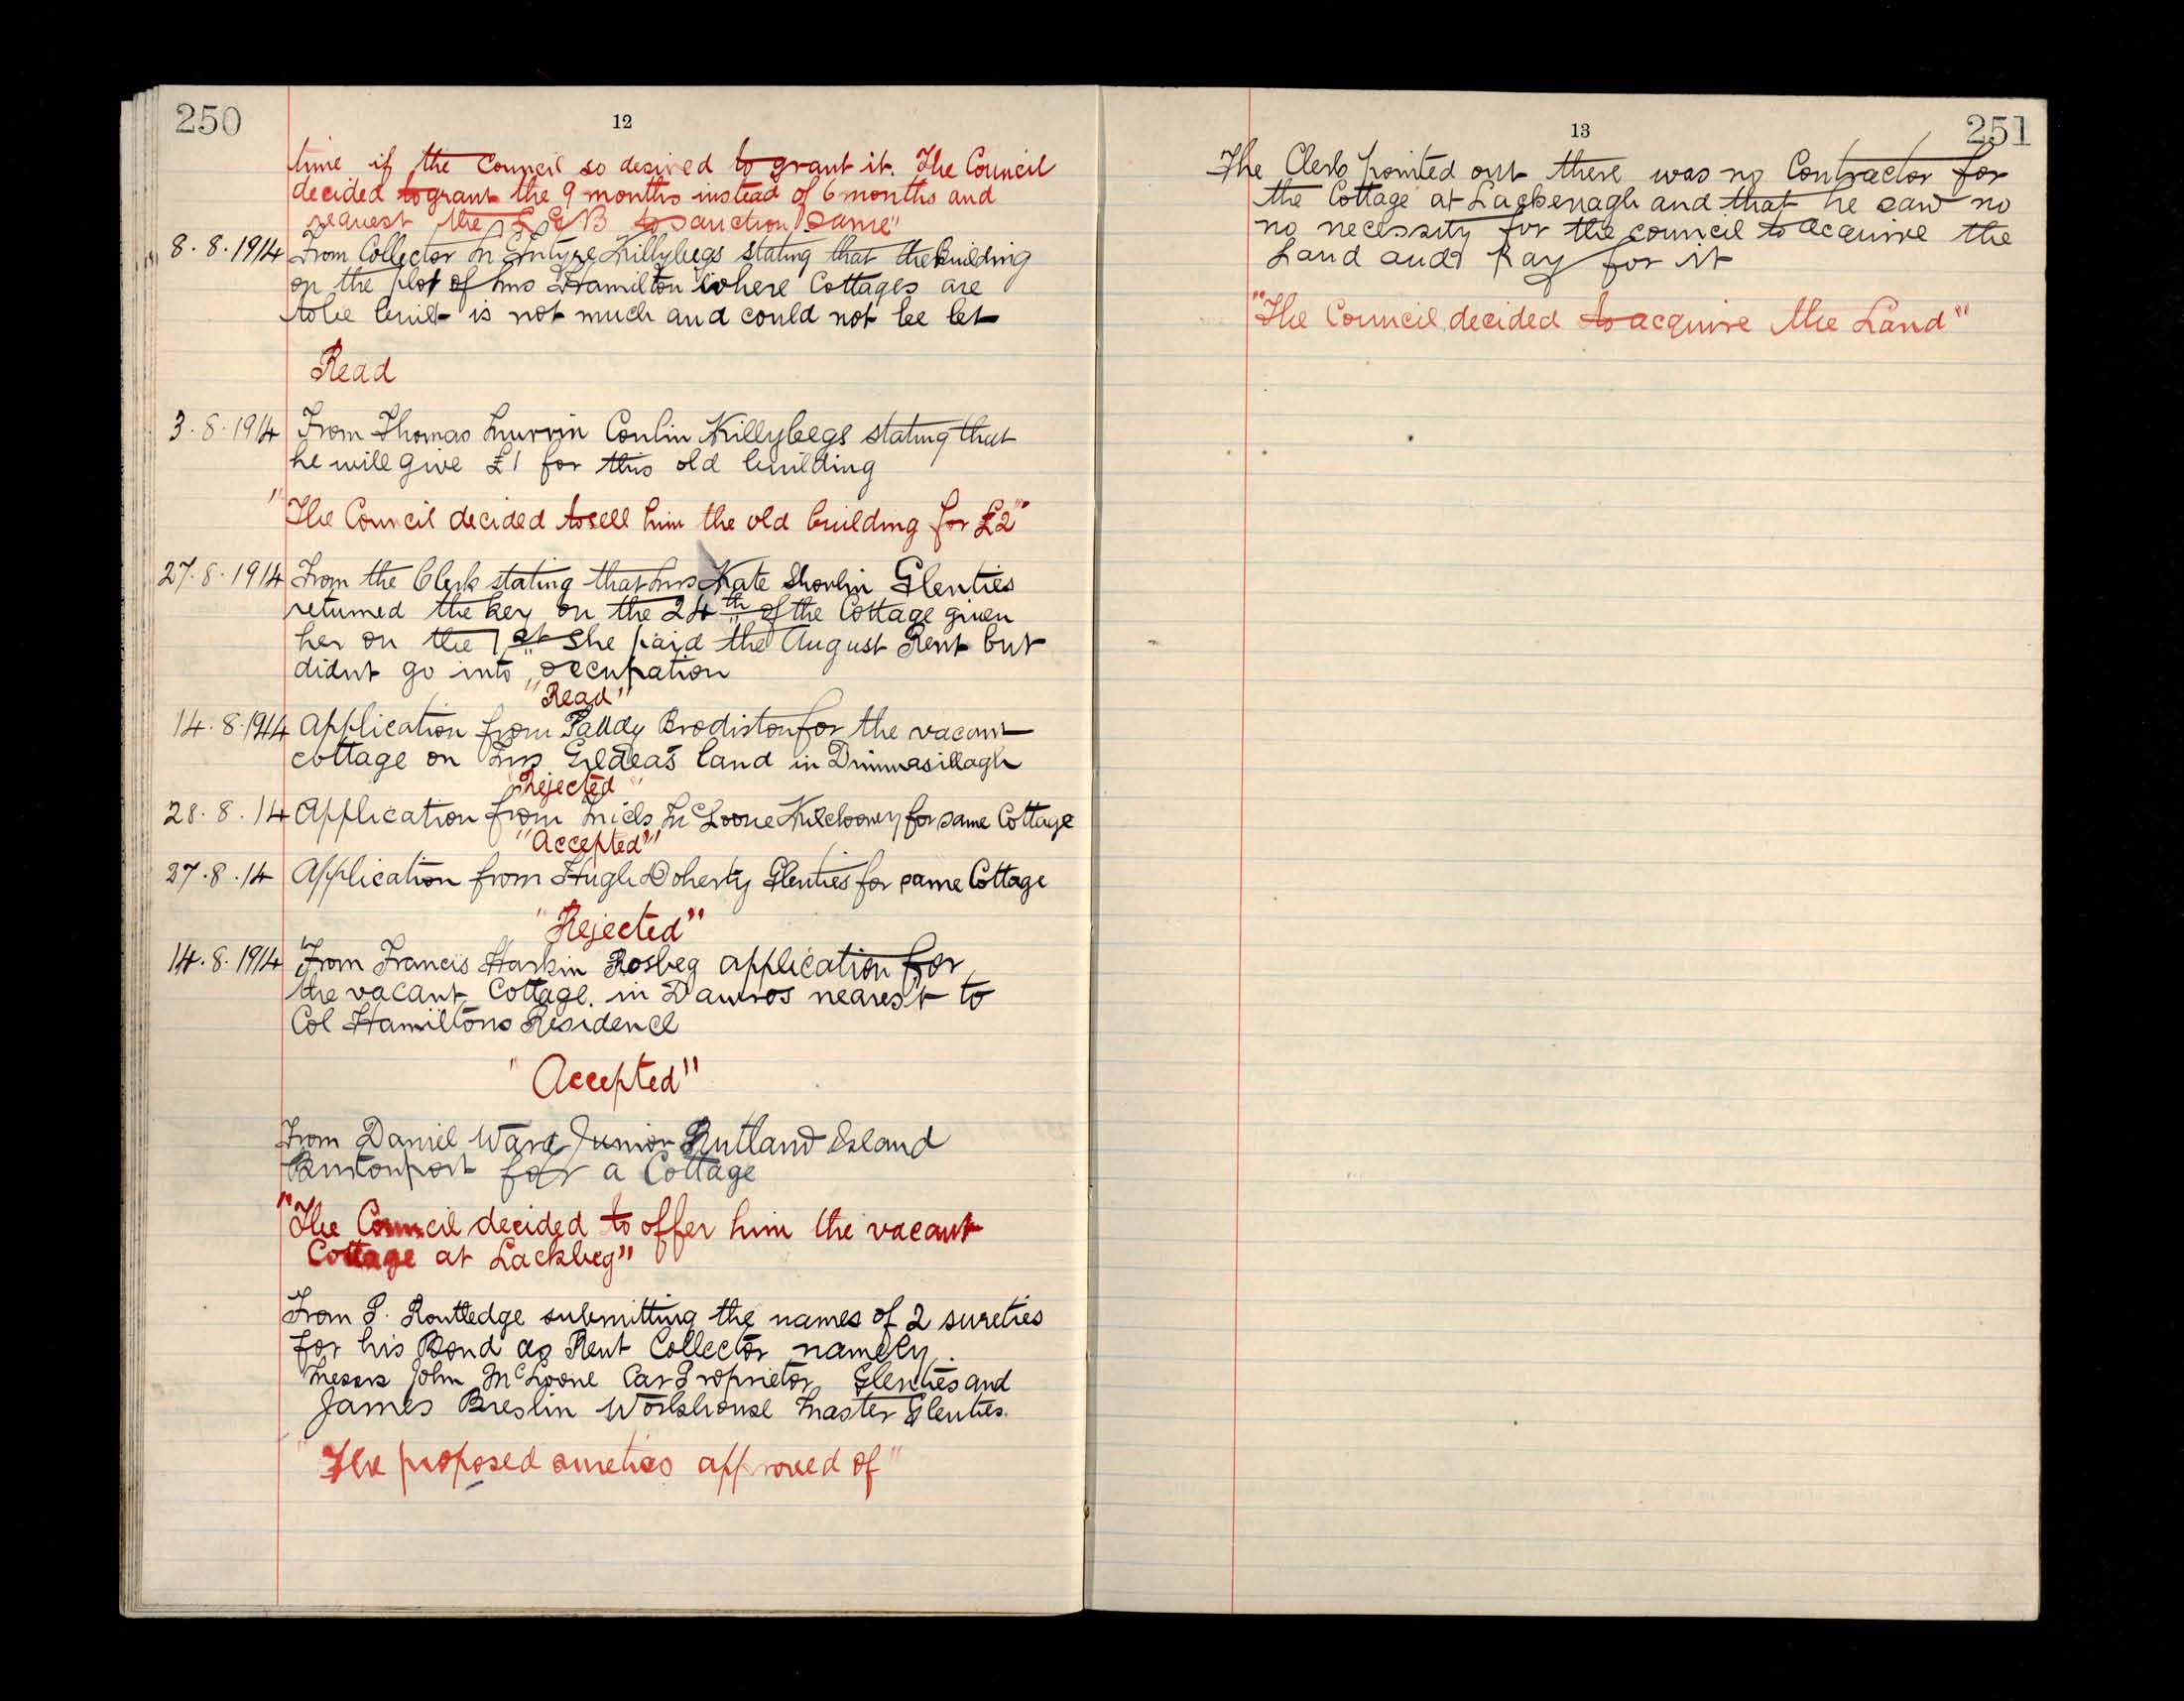 250
12
time if the Council so desired to grant it. The Council
decided to grant the 9 months instead of 6 months and
request the L G B to sanction same"
8.8.1914 From Collector McIntyre Killybegs stating that the building
on the plot of Mrs Hamilton where Cottages are
to be built is not much and could not be let
Read
3.8.1914 From Thomas Murrin Conlin Killybegs stating that
he will give £1 for this old building
"The Council decided to sell him the old building for £2"
27.8.1914 From the Clerk stating that Mrs Kate Shovlin Glenties
returned the key on the 24th of the Cottage given
her on the 1st She paid the August Rent but
didnt go into occupation
"Read"
14.8.1914 Application from Paddy Brodiston for the vacant
cottage on Mrs Gildea's land in
"Rejected"
28.8.14 Application from Niels McLoone Kilclooney for same Cottage
"Accepted"
27.8.14 Application from Hugh Doherty Glenties for same Cottage
"Rejected"
14.8.1914 From Francis Harkin Rosbeg application for
the vacant Cottage in Dawros nearest to
Col Hamiltons Residence
"Accepted"
From Daniel Ward Junior Rutland Island
Burtonport for a Cottage
"The Council decided to offer him the vacant
Cottage at Lackbeg"
From P. Routledge submitting the names of 2 sureties
for his Bond as Rent Collector namely
Messrs John McLoone Car Proprietor Glenties and
James Breslin Workhouse Master Glenties.
"The proposed sureties approved of"
13
251
The Clerk pointed out there was no Contractor for
the Cottage at Lackenagh and that he saw no
no necessity for the council to acquire the
Land and pay for it
"The Council decided to acquire the Land"